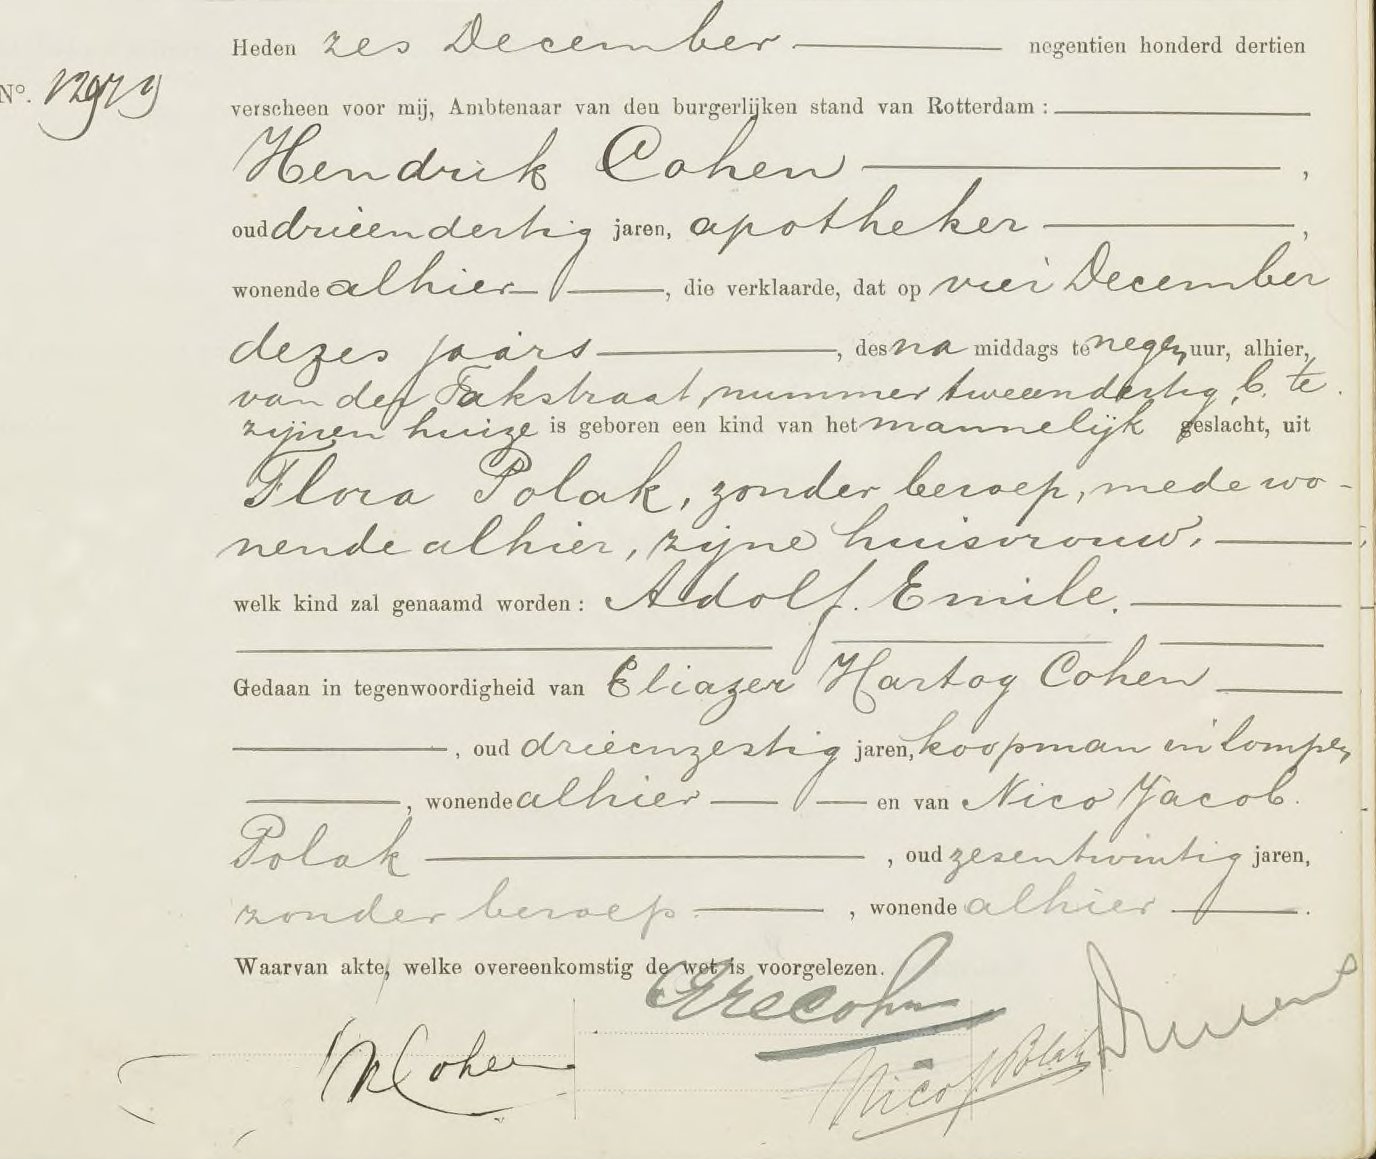 Heden zes December negentien honderd dertien
N°.
verscheen voor mij, Ambtenaar van den burgerlijken stand van Rotterdam:
Hendrik Cohen,
oud drieendertig jaren, apotheker,
wonende alhier, die verklaarde, dat op vier December
dezes jaars, des na middags te negen uur, alhier,
van der Takstraat, nummer tweeendertig b. te
zijnen huize is geboren een kind van het mannelijk geslacht, uit
Flora Polak, zonder beroep, mede wo-
nende alhier, zijne huisvrouw,
welk kind zal genaamd worden: Adolf. Emile.
Gedaan in tegenwoordigheid van Eliazer Hartog Cohen
, oud drieenzestig jaren, koopman in lompen
, wonende alhier en van Nico Jacob.
Polak, oud zesentwintig jaren,
zonder beroep., wonende alhier.
Waarvan akte, welke overeenkomstig de wet is voorgelezen.
Cohen
Nico J Polak